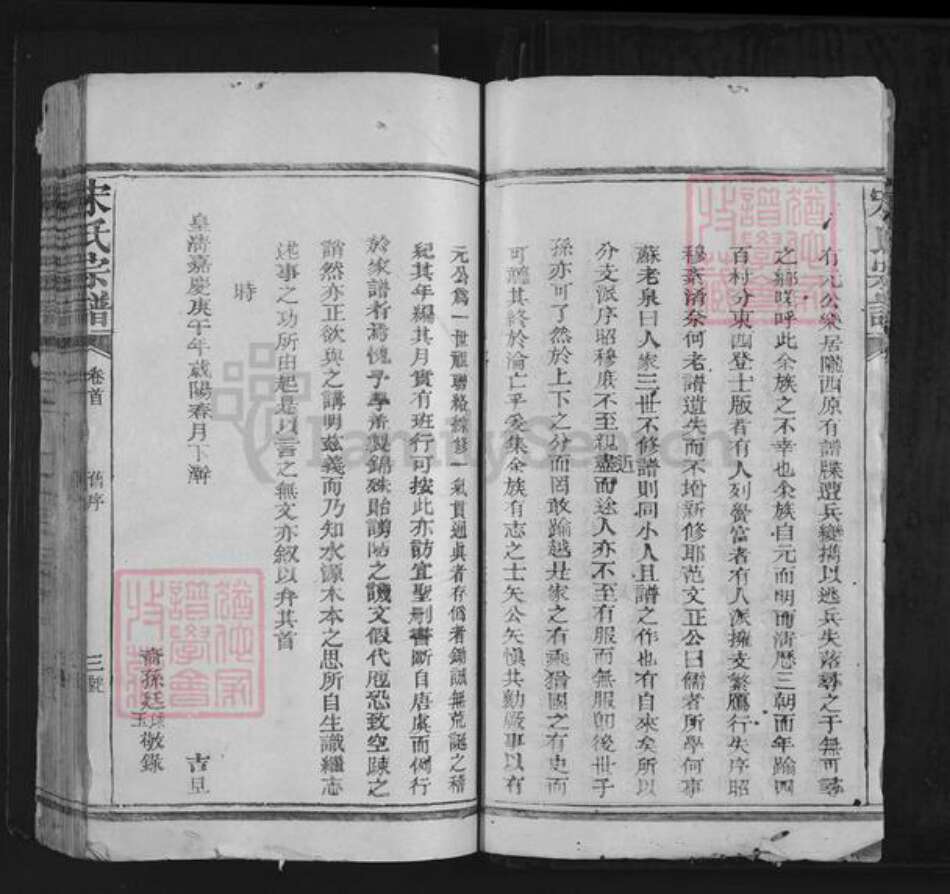 有元公樂居隴西原有譜牒遭兵燹攜以逃兵失落尋之于無可尋
之鄉嗟呼此余族之不幸也余族自元而明而清歷三朝而年踰四
百村分東西登士版者有人列黌宮者有人派擁支繁鴈行失序昭
穆紊淆奈何老譜遺失而不增新修耶范文正公曰儒者所學何事
蘇老泉曰人家三世不修譜則同小人且譜之作也有自來矣所以
分支派序昭穆庶不至親盡而途人亦不至有服而無服卽後世子
近
孫亦可了然於上下之分而罔敢踰越是家之有乘猶國之有史而
可聽其終於淪亡乎爰集余族有志之士矢公矢愼共勷厥事以有
元公爲一世祖聯絡條修一氣貫通眞者存僞者鋤諷無荒誕之稽
紀其年編其月實有班行可按此亦訪宣聖刪書斷自唐虞而例行
於家譜者焉愧予學靑製錦殊貽謭陋之譏文假代庖恐致空疎之
誚然亦正欲與之講明玆義而乃知水源木本之思所自生識繼志
述事之功所由起是以言之無文亦叙以弁其首
時
皇淸嘉慶庚午年歲陽春月下澣 吉旦
裔孫廷
玉
敬錄
宋氏宗譜
卷首
舊序
三
宋氏宗譜
FamilySearch